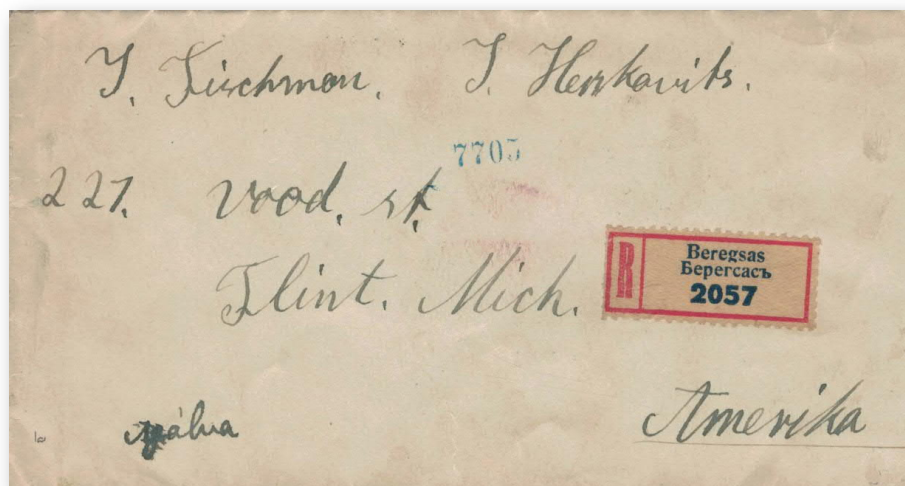 J. Fischman. J. Herskovits.
7705
227. vood. st.
Flint. Mich.
R
Beregsas
Берегсасъ
2057
Amerika